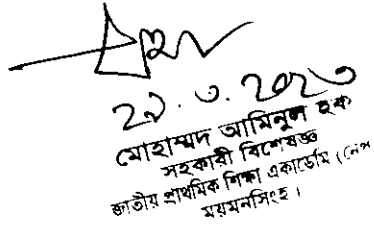 ২৯.৩.২০২৩
মোহাম্মদ আমিনুল হক
সহকারী বিশেষজ্ঞ
জাতীয় প্রাথমিক শিক্ষা একাডেমি (নেপ
ময়মনসিংহ।